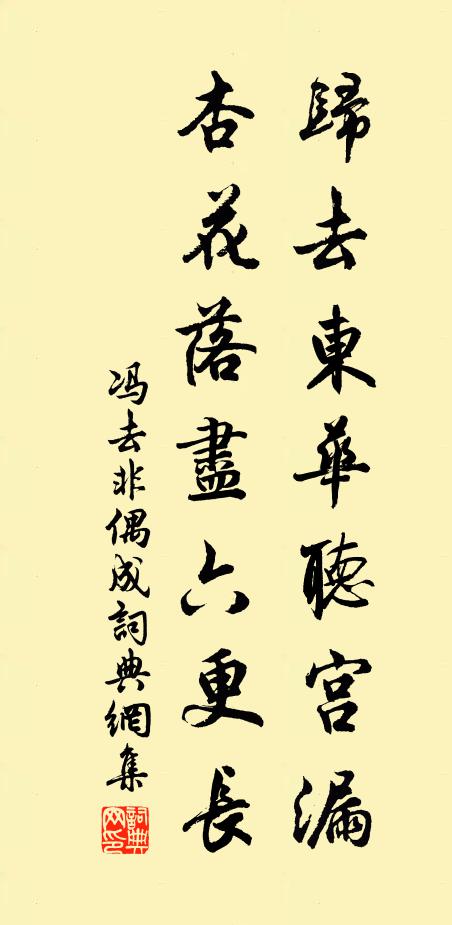 歸去東華聽宫漏
杏花落盡六更長
冯去非偶成詞典網集
詞典網印